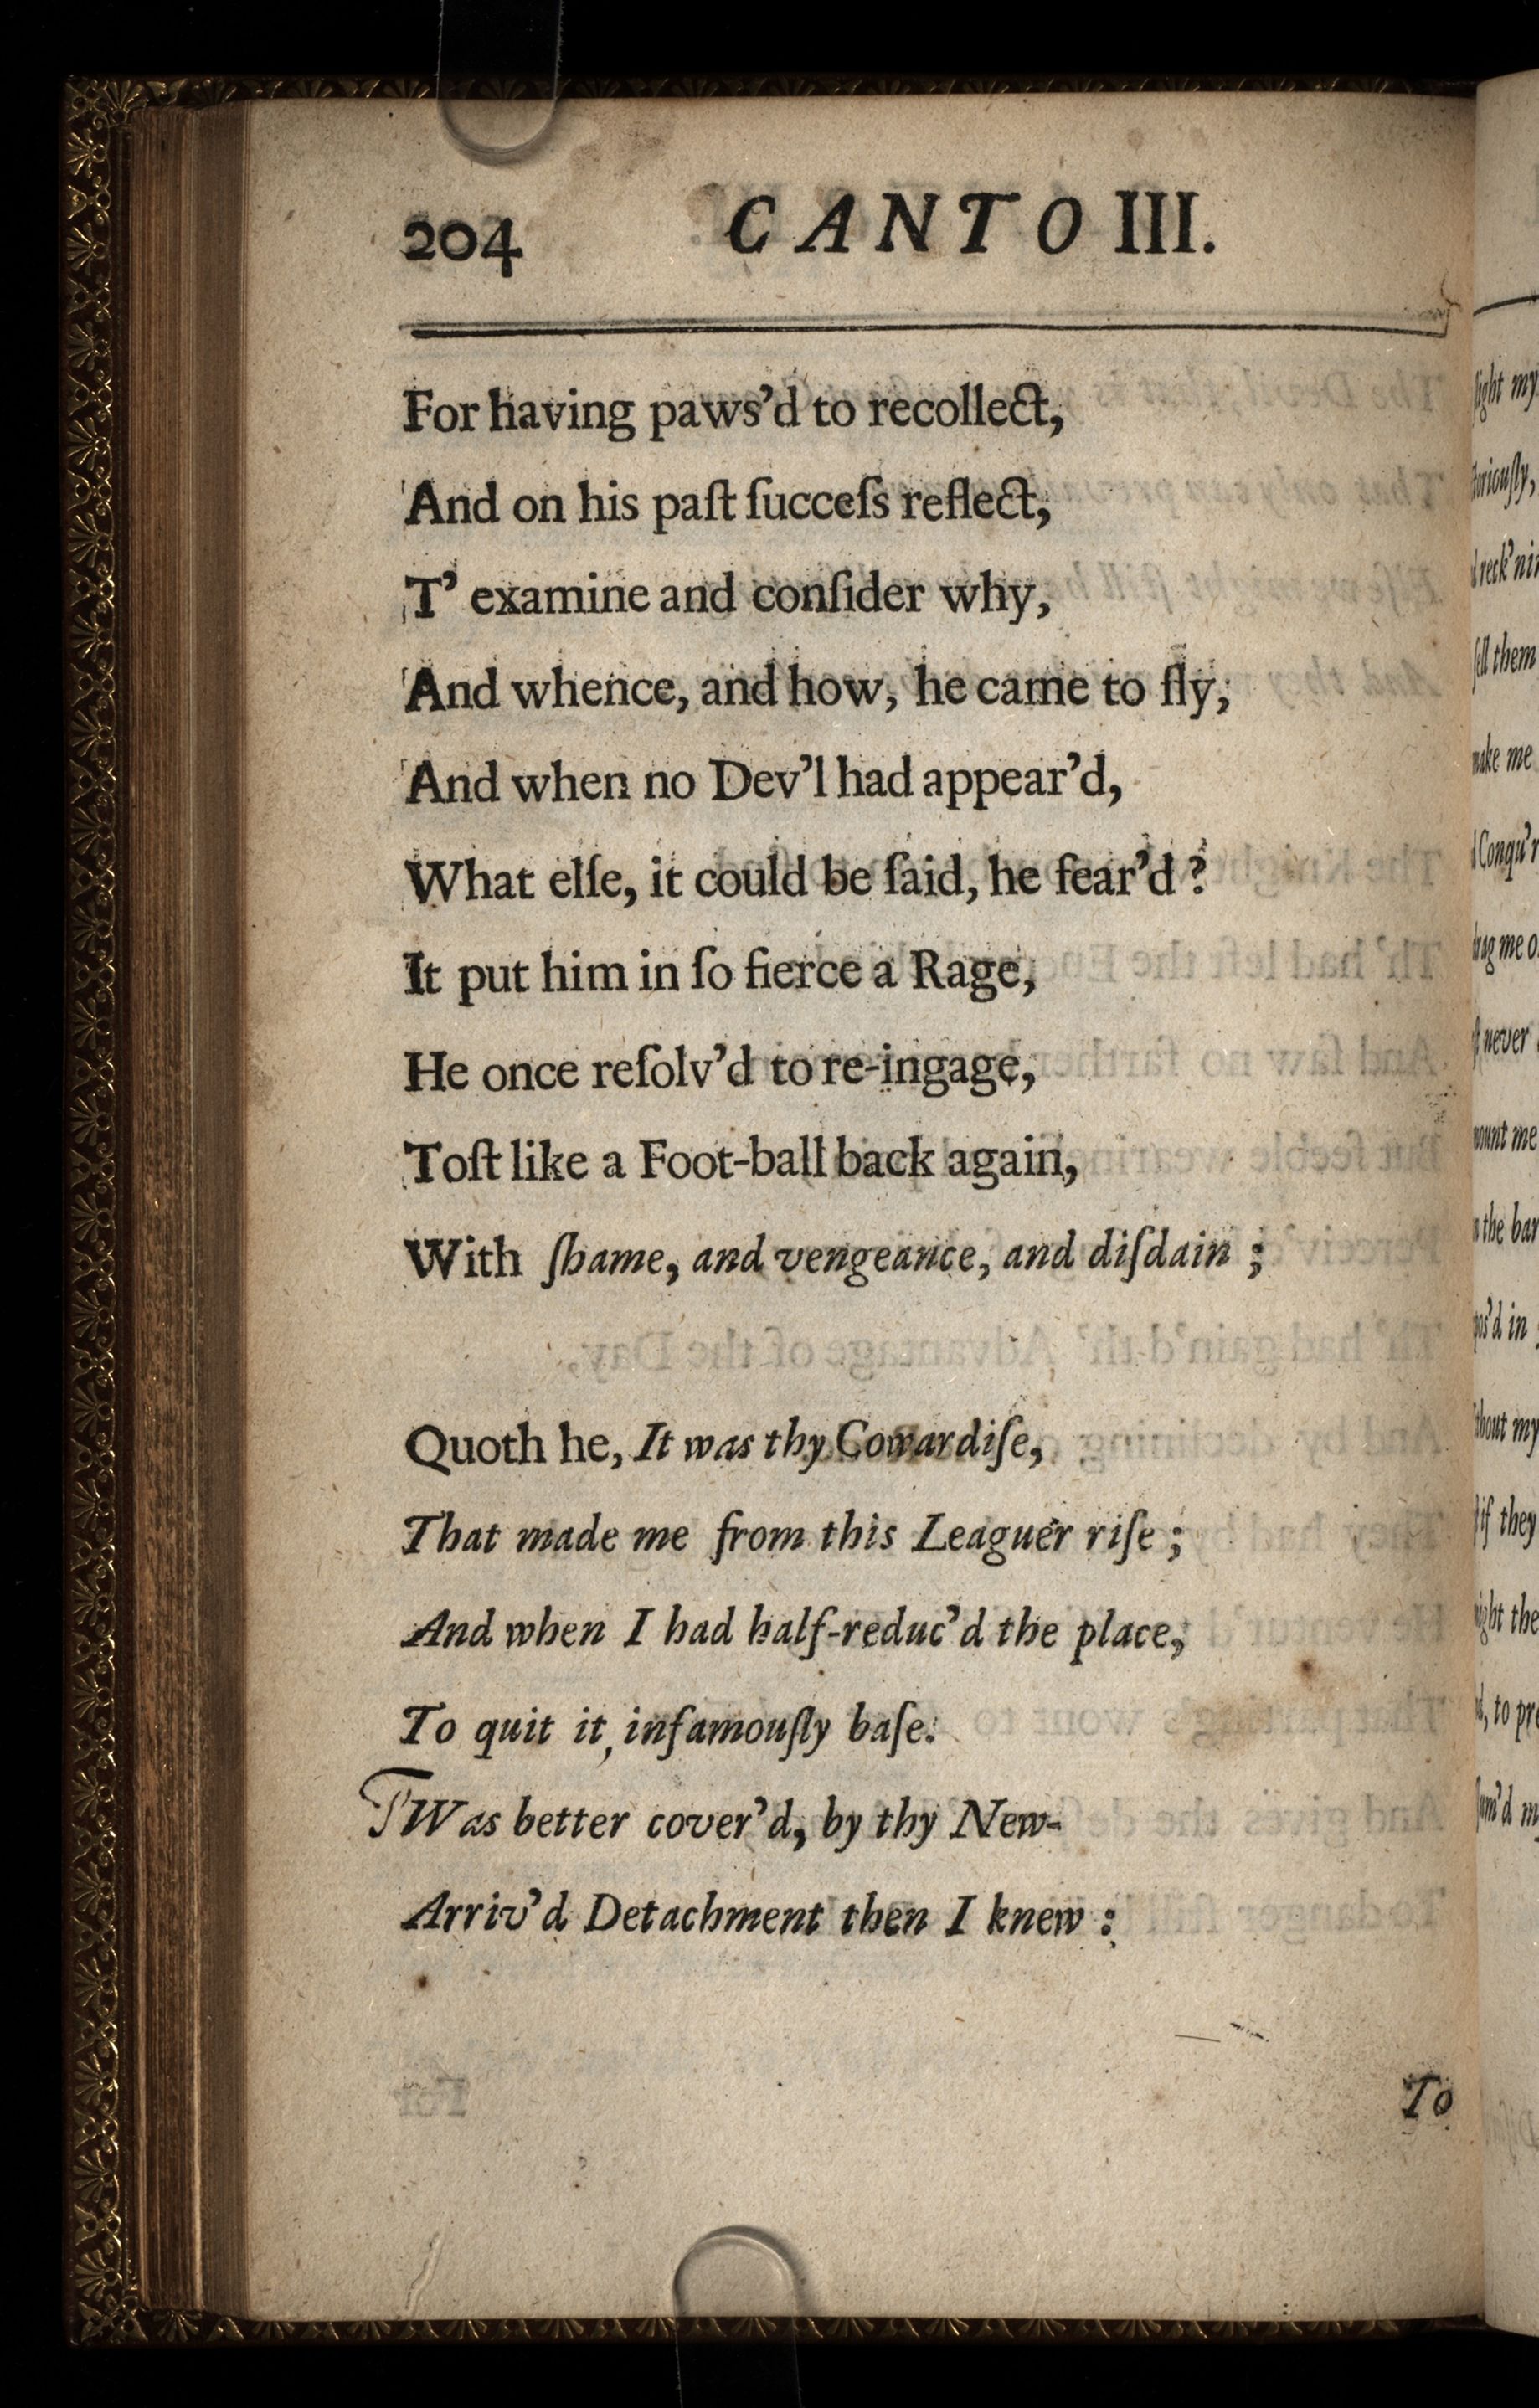 204 CANTO III.
For having paws’d to recollect,
And on his paſt ſucceſs reflect,
T’ examine and conſider why,
And whence, and how, he came to fly,
And when no Dev’l had appear’d,
What elſe, it could be ſaid, he fear’d ?
It put him in ſo fierce a Rage,
He once reſolv’d to re-ingage,
Toſt like a Foot-ball back again,
With ſhame, and vengeance, and diſdain ;
Quoth he, It was thy Cowardiſe,
That made me from this Leaguer riſe ;
And when I had half-reduc’d the place,
To quit it, infamouſly baſe.
TWas better cover’d, by thy New-
Arriv’d Detachment then I knew :
To